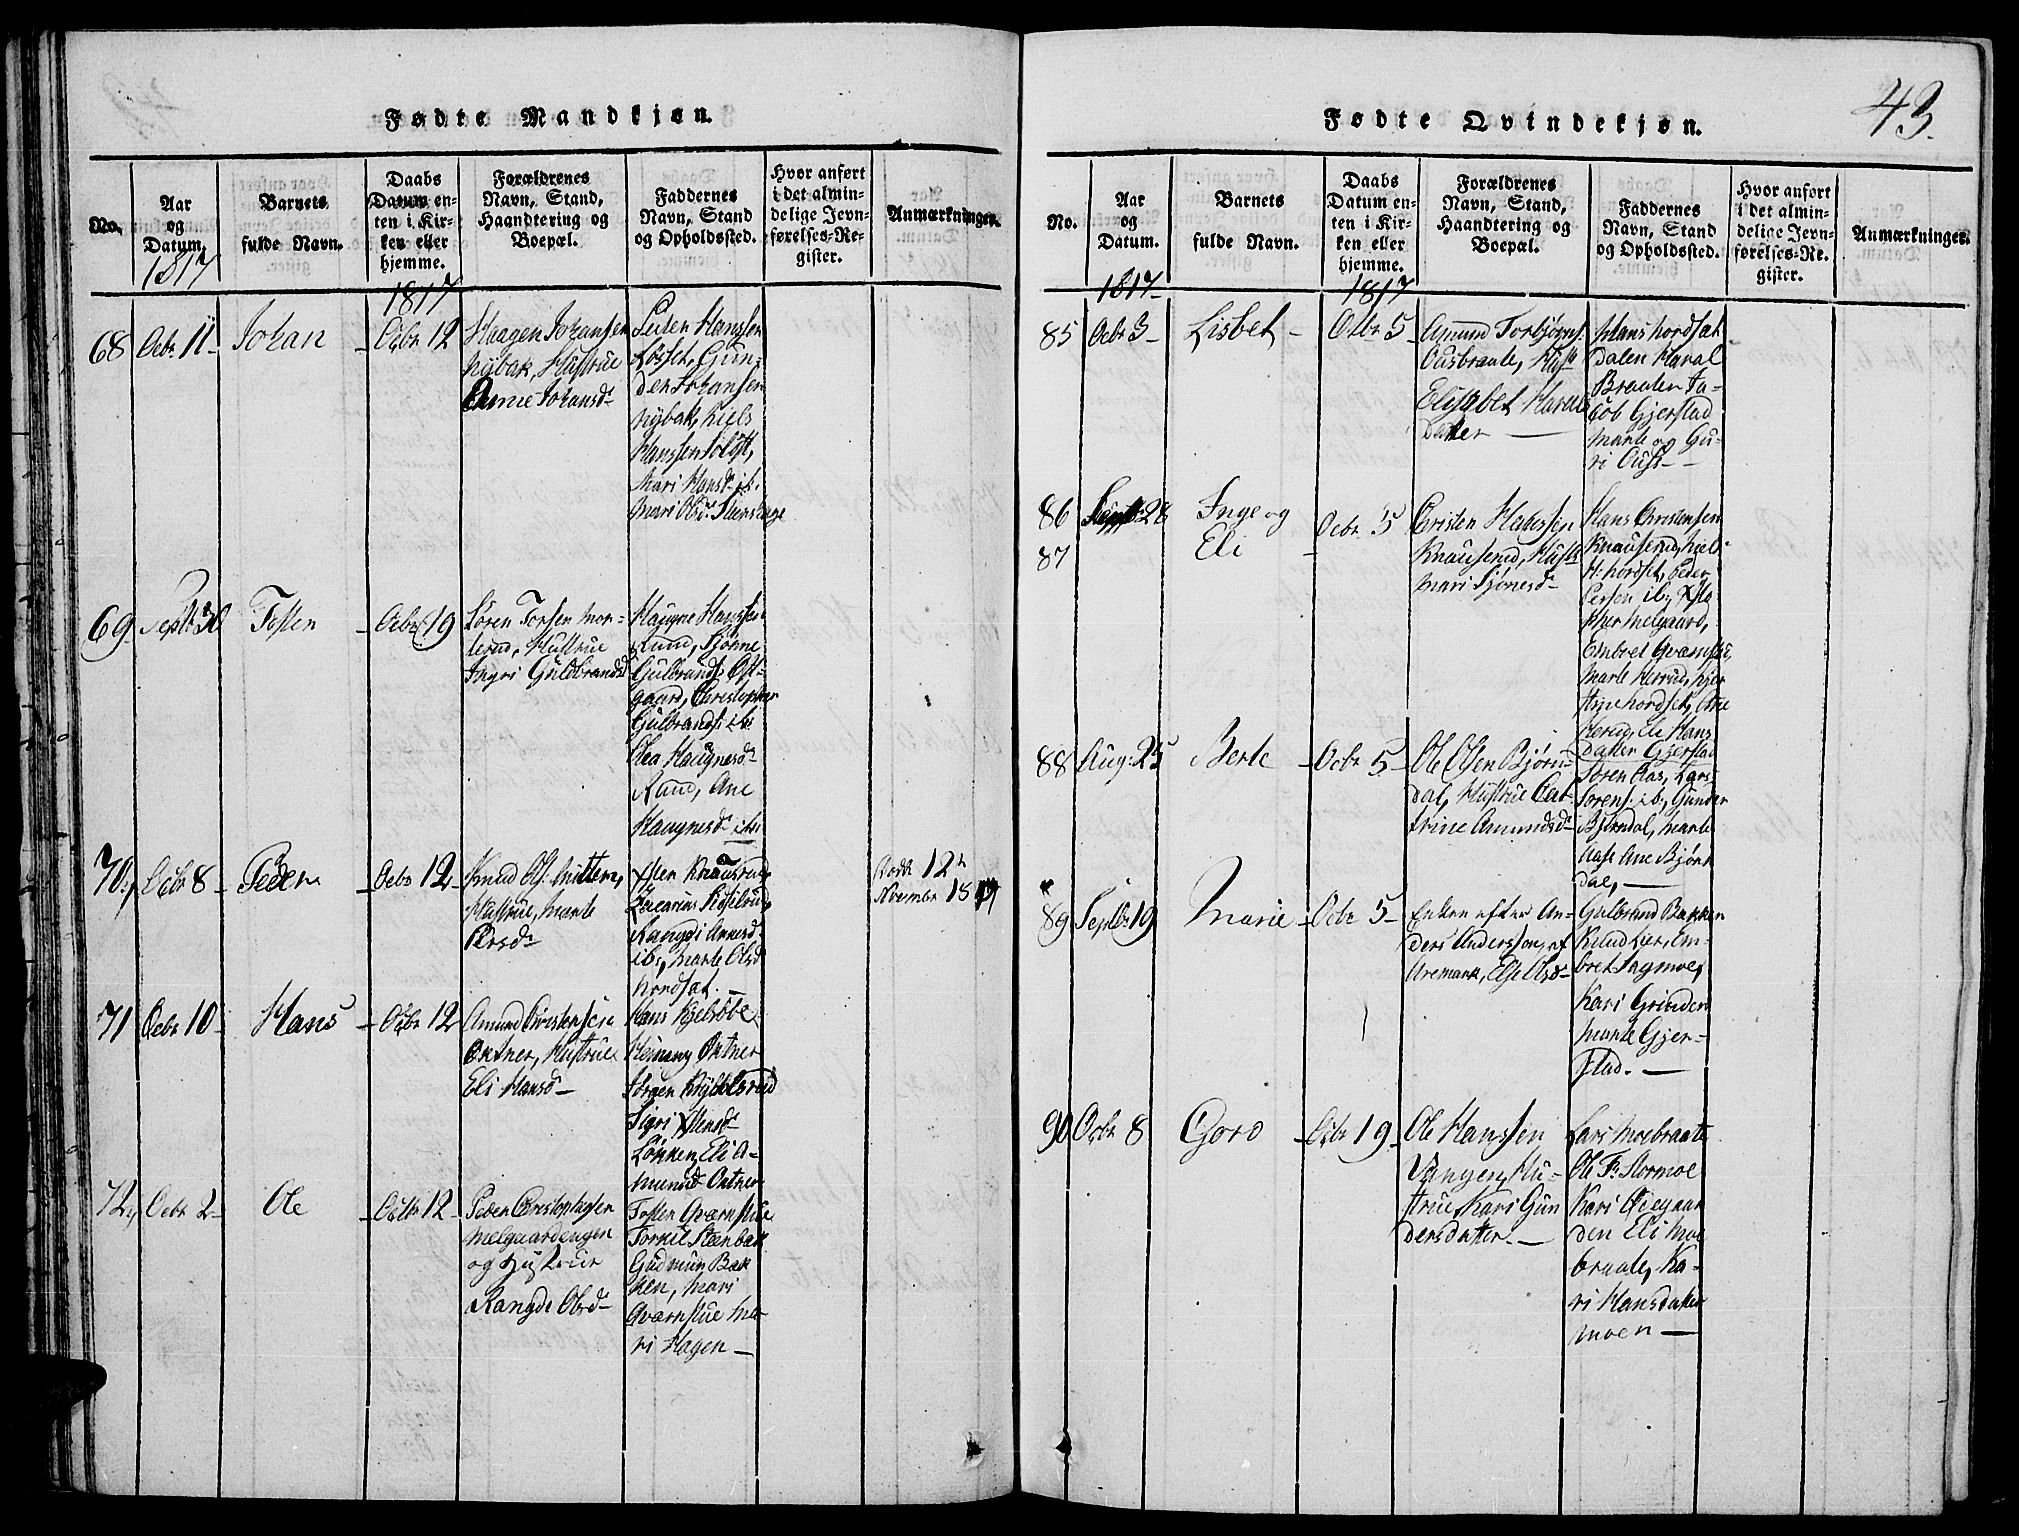 Fødte Mandkjøn.
No.
Aar
og
Datum.
1817
Barnets
fulde Navn.
Daabs
Datum en-
ten i Kir-
ken eller
hjemme.
1817
Forældrenes
Navn, Stand,
Haandtering og
Boepæl.
Faddernes
Navn, Stand
og Opholdssted.
Hvor anført
i det almin-
delige Jevn-
førelses-Re-
gister.
Anmærkninger.
68
Octbr 11
Johan
Octbr 12
Haagen Johansen
Nybak, Hustrue
Anne Johansd
Hansen
Løsset, Gun-
der Johansen
Nybak, Niels
Hanssen
Mari Hansd ib.
Mari Olsd
69
Septbr 30
Tosten
Octbr 19
Søren Torsen Mor-
terud, Hustrue
Ingri Guldbrandsd
Haugne Hanssen
Rund, Siønne
Gulbrands: Øst-
gaard, Christopher
Gulbrands: ib:
Olea Haugnesd
Rund, Ane
Haugnesd ib:
70
Octbr 8
Peder
Octbr 12
Knud Ols:
Hustrue, Marte
Persd
Knausrud,
Zacarias
Rangdi
ib:, Marte Olsd
Nordsæt.
12
November 1819
71
Octbr 10
Hans
Octbr 12
Amund Christensen
Oxtner, Hustrue
Eli Hansd
Hans
Heming Oxtner
Sigri
Løkken, Eli A-
mund Oxtner
72
Octbr 2
Ole
Octbr 12
Peder Christophersen
Melgaardengen
og Hustrue
Rangdi Olsd
Tosten Qværnstue
Torkil Steenbak
Gudmun Bak
ken, Mari
Qværnstue Ma-
ri Hagen
Fødte Qvindekjøn.
43.
No.
Aar
og
Datum.
1817
Barnets
fulde Navn.
Daabs
Datum en-
ten i Kir-
ken eller
hjemme.
1817
Forældrenes
Navn, Stand,
Haandtering og
Boepæl.
Faddernes
Navn, Stand
og Opholdssted.
Hvor anført
i det almin-
delige Jevn-
førelses-Re-
gister.
Anmærkninger.
85
Octbr 3
Lisbet
Octbr 5
Amund Torbjørns:
Ousbraate, Hust
Elisabet Haral
datter
Hans Nordsæt
Dalen Haral
Braaten Ja-
cob Gjerstad
Marte og Gu-
ri Ous
86
87
Septbr 28
Inge og
Eli
Octbr 5
Cristen Hanssen
Knausrud, Hust
Mari Siønesd
Hans Christensen
Knausrud, Niels
H: Nordset, Peder
Persen ib:, Xsto
pher Melgaard,
Embret
Marte Herud, Kjer
stine Nordset, Ane
Herud, Eli Hans
datter Gjerstad
88
Aug: 25
Berte
Octbr 5
Ole Olsen Bjørn-
dal, Hustrue Cat
trine Amundsd
Søren Aas, Lars
Sørens: ib:, Gunder
Bjørndal, Marte
Aas Ane Bjørn
dal,
89
Septbr 19
Marie
Octbr 5
Enken efter An-
ders Anderssøn, af
Aremark, Else Olsd
Gulbrand Bakken
Knud Lier, Em-
bret Sagmoe,
Kari Grinder
Marte Gjer-
stad.
90
Octbr 8
Goro
Octbr 19
Ole Hanssen
Vangen, Hu-
strue Kari Gun
dersdatter
Lars Moebraate
Ole P: Stormoe
Kari Ødegaar
den Eli Moe
braate, Ka-
ri Hansdatter
Moen